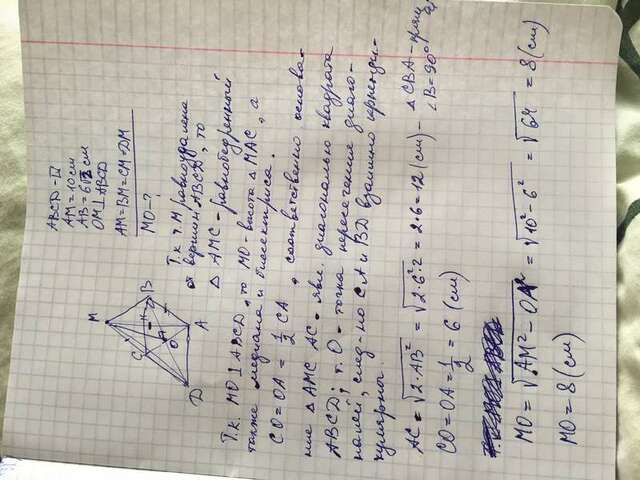 ABCD - □
AM = 10 см
AB = 6√2 см
OM ⊥ ABCD
AM = BM = CM = DM
MO - ?
M
C
K
B
O
D
A
Т.к. т. М равноудалена
от вершин ABCD, то
△ AMC - равнобедренный
Т.к. MO ⊥ ABCD, то MO - высота △ MAC, а
также медиана и биссектриса.
CO = OA = 1/2 CA, соответственно основа-
ние △ AMC AC - явл. диагональю квадрата
ABCD; т. O - точка пересечения диаго-
налей, след-но CA и BD взаимно
кулярны.
AC = √2·AB² = √2·6²·2 = 2·6 = 12 (см) - △ CBA -
∠B = 90°
CO = OA = 1/2 = 6 (см)
MO = √AM² - OA² = √10² - 6² = √64 = 8 (см)
MO = 8 (см)